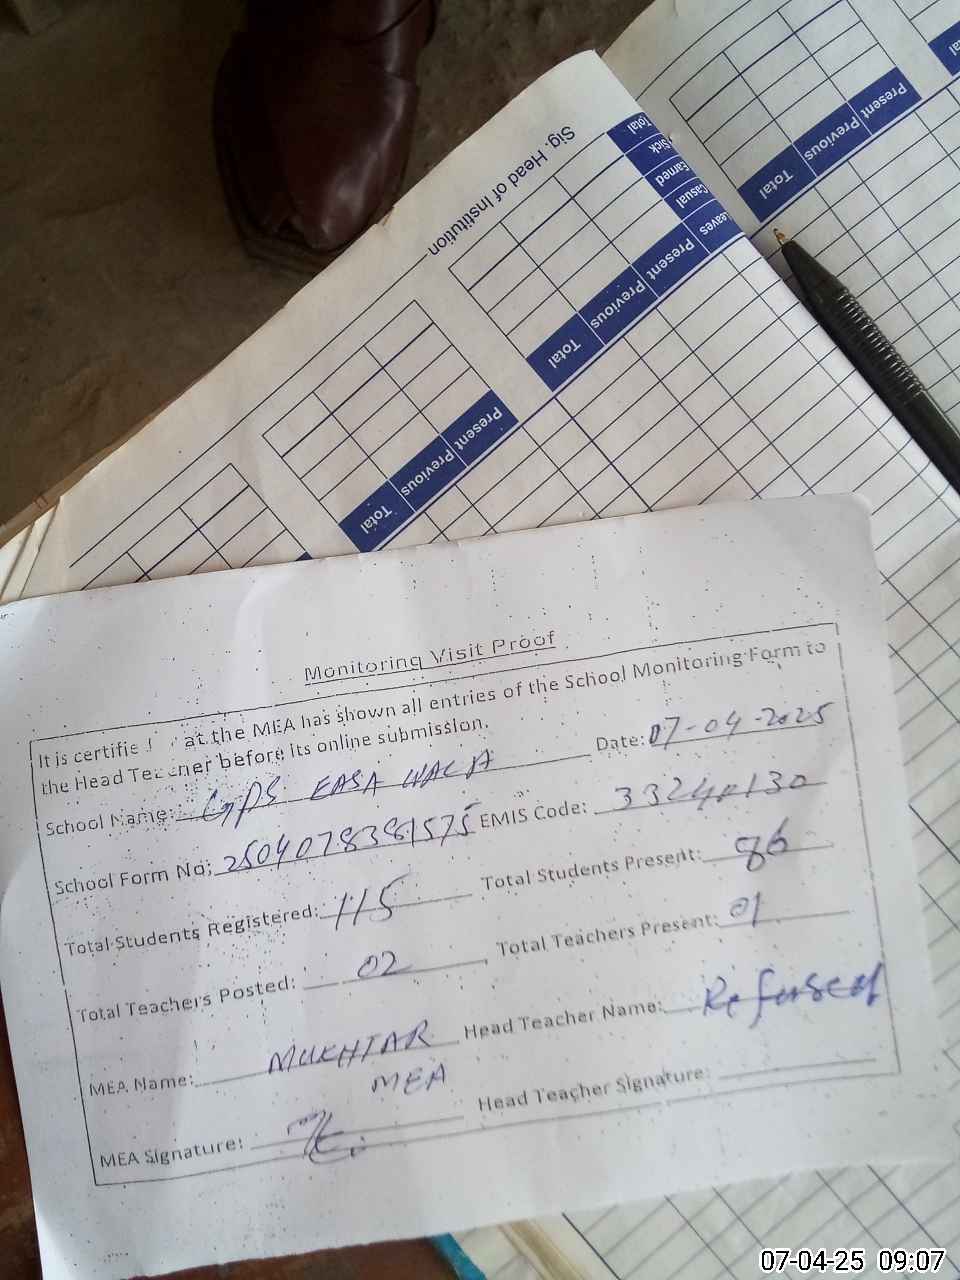 Sig. Head of Institution
Total
Sick
Earned
Casual
Leaves
Total Previous Present
Total Previous Present
Total Previous Present
Monitoring Visit Proof
It is certified at the MEA has shown all entries of the School Monitoring Form to
the Head Teacher before its online submission.
School Name: GPS EASA WALA Date: 07-04-2025
School Form No: 2504078381575 EMIS Code: 33240130
Total Students Registered: 115 Total Students Present: 86
Total Teachers Posted: 02 Total Teachers Present: 01
MEA Name: MUKHTAR Head Teacher Name: Refused
MEA
MEA Signature: Head Teacher Signature:
07-04-25 09:07